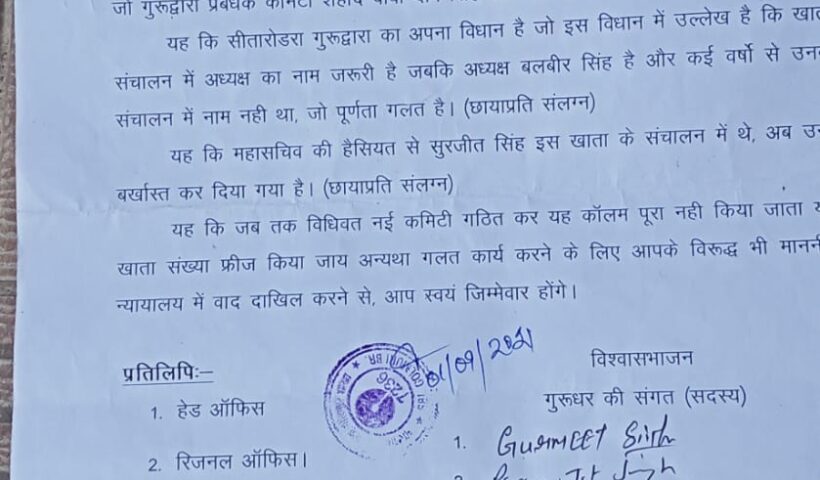 जो गुरूद्वारा प्रबंधक कमिटी
यह कि सीतारोडरा गुरूद्वारा का अपना विधान है जो इस विधान में उल्लेख है कि
संचालन में अध्यक्ष का नाम जरूरी है जबकि अध्यक्ष बलबीर सिंह है और कई वर्षो से
संचालन में नाम नही था, जो पूर्णता गलत है। (छायाप्रति संलग्न)
यह कि महासचिव की हैसियत से सुरजीत सिंह इस खाता के संचालन में थे, अब
बर्खास्त कर दिया गया है। (छायाप्रति संलग्न)
यह कि जब तक विधिवत नई कमिटी गठित कर यह कॉलम पूरा नही किया जाता
खाता संख्या फ्रीज किया जाय अन्यथा गलत कार्य करने के लिए आपके विरूद्ध भी
न्यायालय में वाद दाखिल करने से, आप स्वयं जिम्मेवार होंगे।
प्रतिलिपिः–
GOLMURI BR.
7236
01/09/2021
विश्वासभाजन
1. हेड ऑफिस
गुरूधर की संगत (सदस्य)
1. GURMEET Singh
2. रिजनल ऑफिस।
Singh